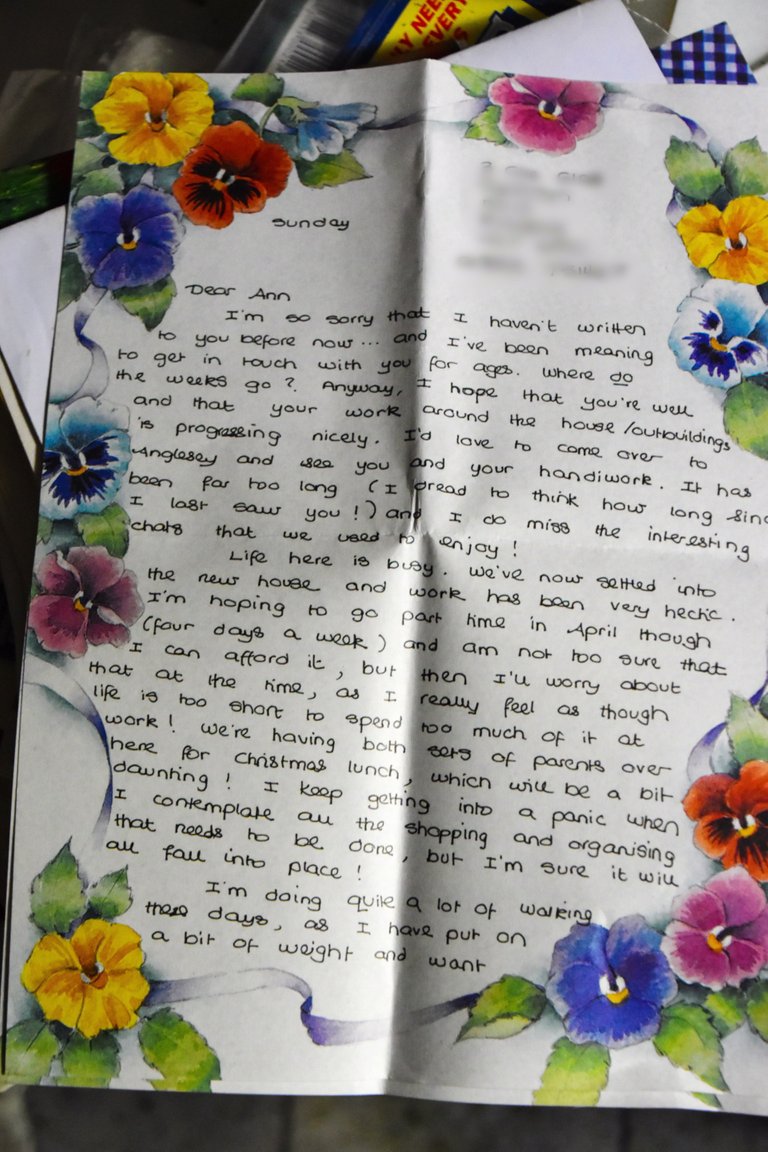 LY NEE
EVERY
Sunday
Dear Ann
I'm so sorry that I haven't written
to you before now... and I've been meaning
to get in touch with you for ages. Where do
the weeks go? Anyway, I hope that you're well
and that your work around the house/outbuildings
is progressing nicely. I'd love to come over to
Anglesey and see you and your handiwork. It has
been far too long (I dread to think how long sinc
I last saw you!) and I do miss the interesting
chats that we used to enjoy!
Life here is busy. We've now settled into
the new house and work has been very hectic.
I'm hoping to go part time in April though
(four days a week) and am not too sure that
I can afford it, but then I'll worry about
that at the time, as I really feel as though
life is too short to spend too much of it at
work! We're having both sets of parents over
here for Christmas lunch, which will be a bit
daunting! I keep getting into a panic when
I contemplate all the shopping and organising
that needs to be done, but I'm sure it will
all fall into place!
I'm doing quite a lot of walking
these days, as I have put on
a bit of weight and want